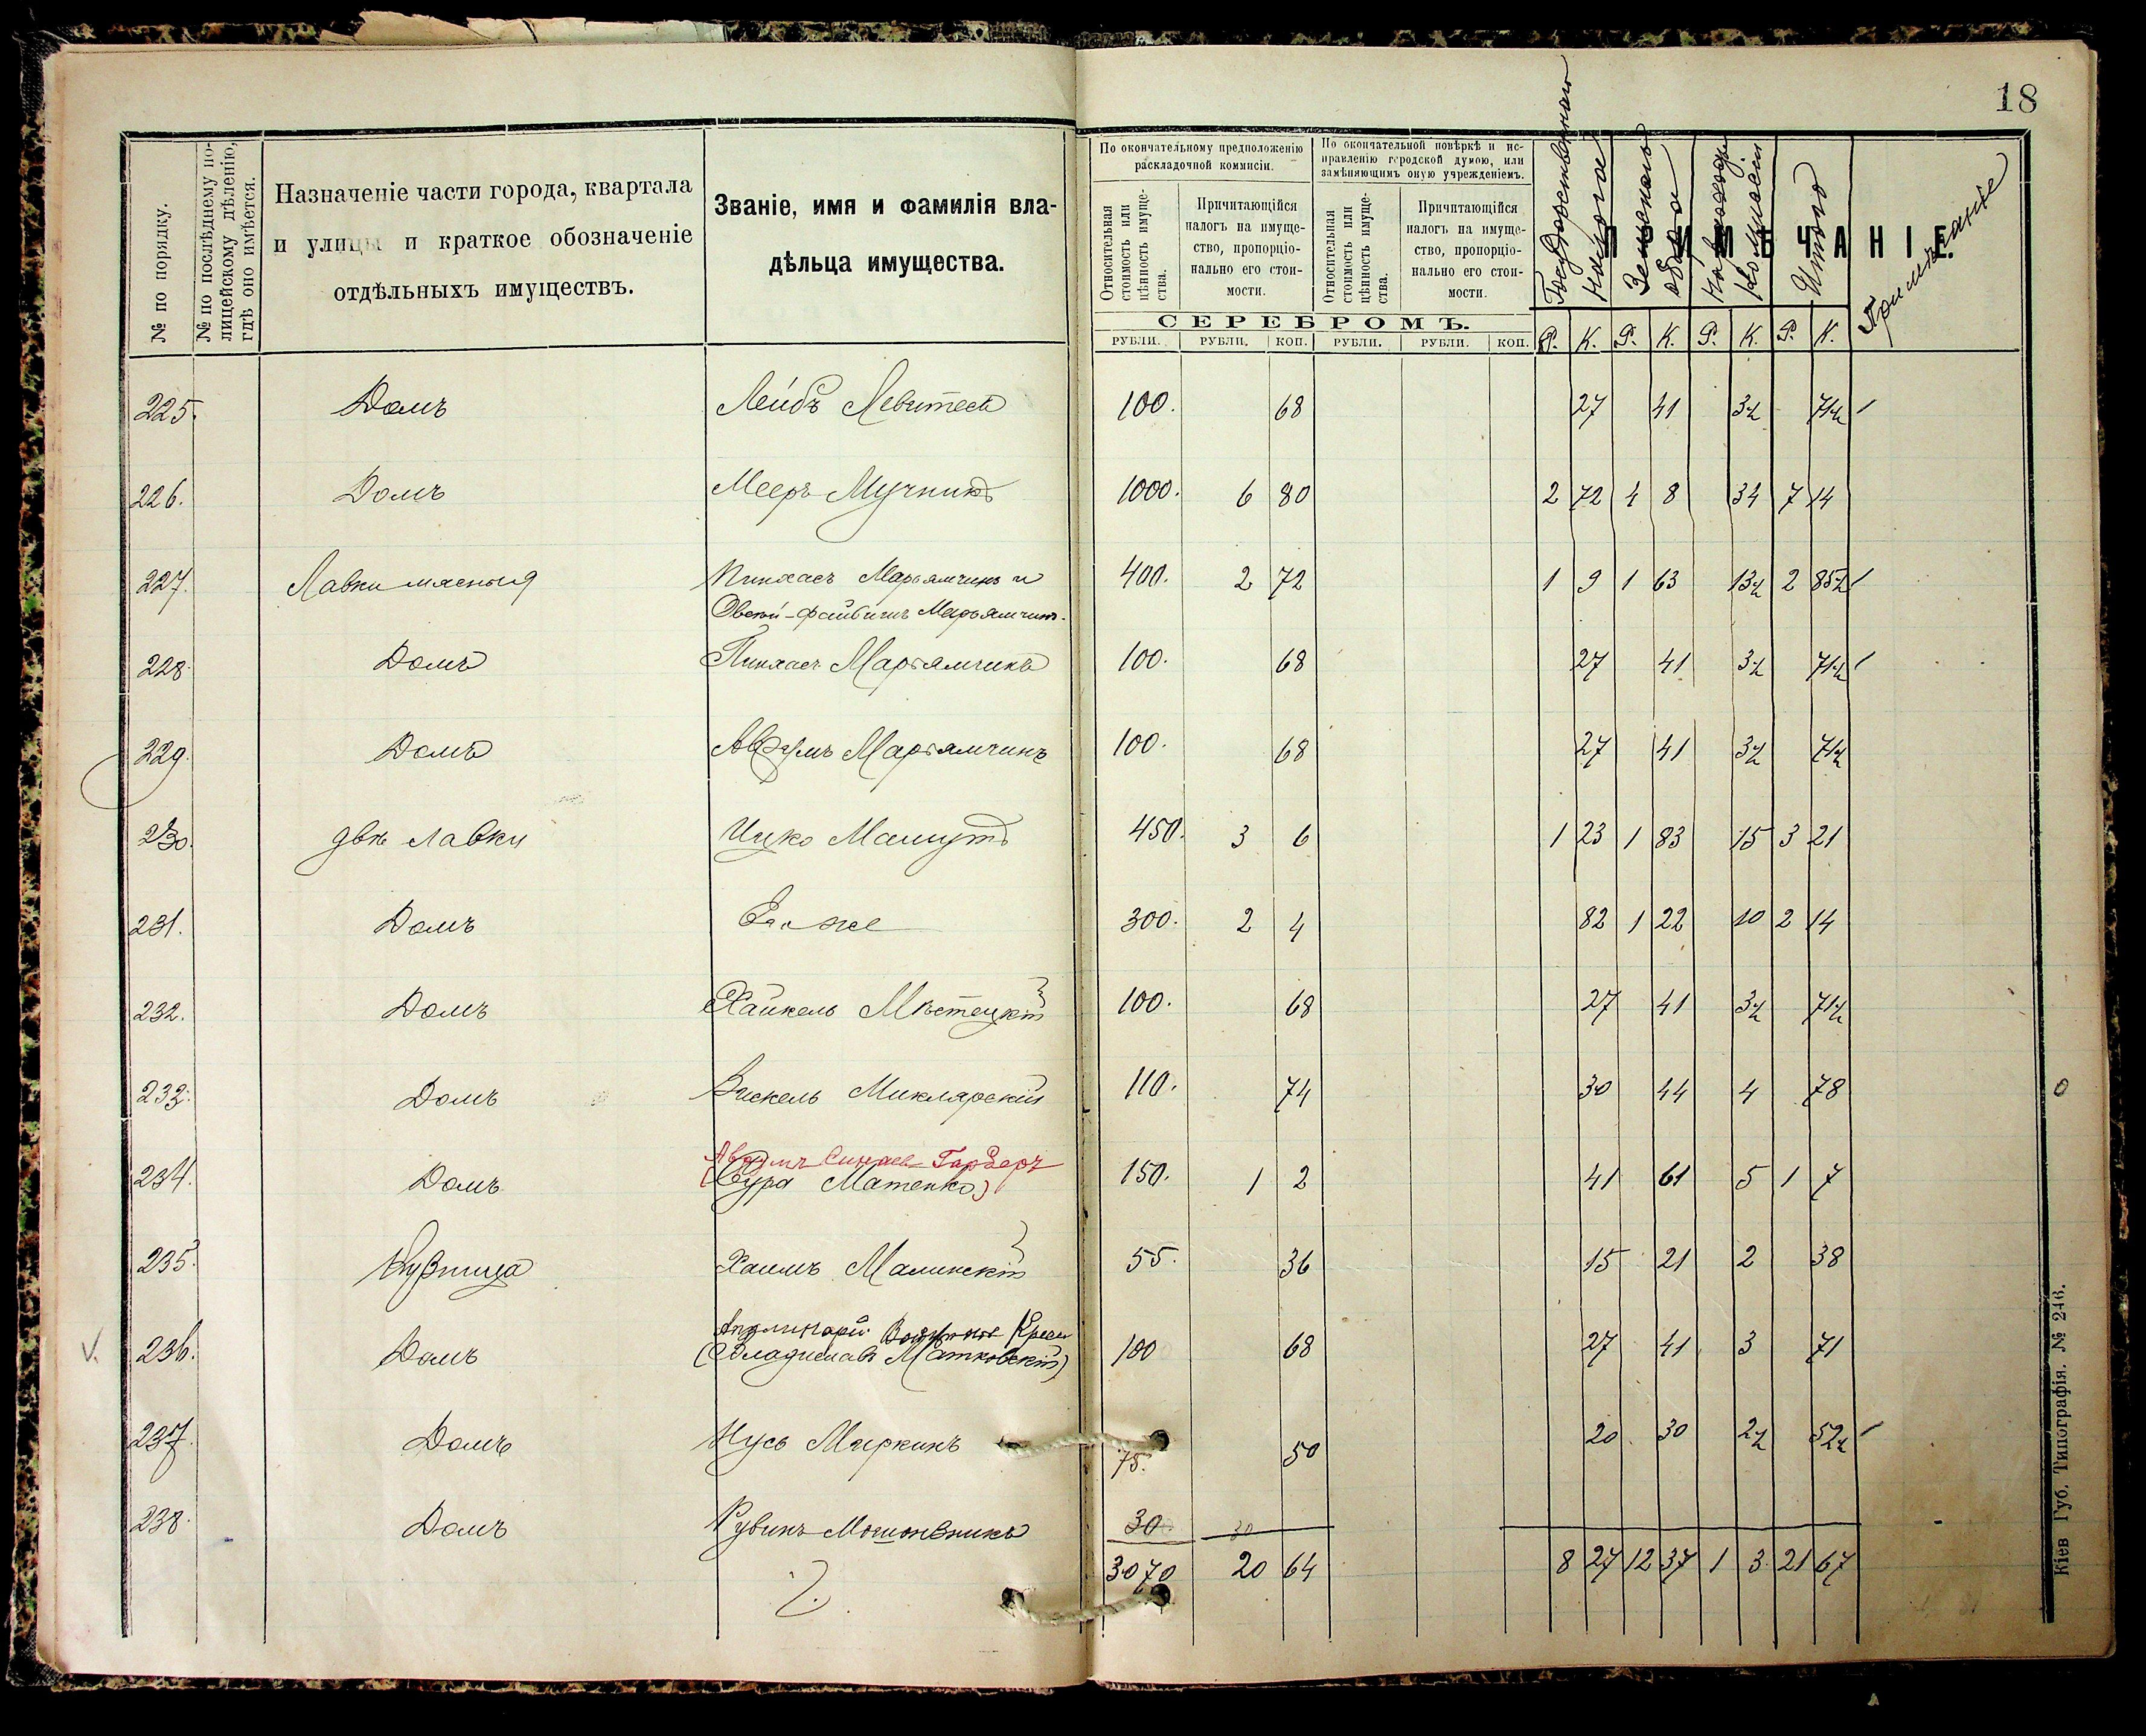 18
№ по порядку.
№ по послѣднему по-
лицейскому дѣленію,
гдѣ оно имѣется.
Назначеніе части города, квартала
и улицы и краткое обозначеніе
отдѣльныхъ имуществъ.
Званіе, имя и фамилія вла-
дѣльца имущества.
По окончательному предположенію
раскладочной коммисіи.
По окончательной повѣркѣ и ис-
правленію городской думою, или
замѣняющимъ оную учрежденіемъ.
Относительная
стоимость или
цѣнность имуще-
ства.
Причитающійся
налогъ на имуще-
ство, пропорціо-
нально его стои-
мости.
Относительная
стоимость или
цѣнность имуще-
ства.
Причитающійся
налогъ на имуще-
ство, пропорціо-
нально его стои-
мости.
ПРИМѢЧАНІЕ.
Государственнаго
налога
Земскаго
сбора
Итого
Примѣчаніе
СЕРЕБРОМЪ.
РУБЛИ. РУБЛИ. КОП. РУБЛИ. РУБЛИ. КОП. Р. К. Р. К. Р. К. Р. К.
225. Домъ Лейбъ Левитесъ 100. 68 27 41 3½ 71½
226. Домъ Мееръ Мучникъ 1000. 6 80 2 72 4 8 34 7 14
227. Лавки мясныя Пинхасъ Марьямчикъ и 400. 2 72 1 9 1 63 13½ 2 85½
Овсей-Файвишъ Марьямчикъ.
228. Домъ Пинхасъ Марьямчикъ 100. 68 27 41 3½ 71½
229. Домъ Аврумъ Марьямчикъ 100. 68 27 41 3½ 71½
230. двѣ лавки Ицко Мамутъ 450. 3 6 1 23 1 83 15 3 21
231. Домъ Его-же 300. 2 4 82 1 22 10 2 14
232. Домъ Хайкель Мѣстецкій 100. 68 27 41 3½ 71½
233. Домъ Хискель Миклярскій 110. 74 30 44 4 78
Аврумъ Гарберъ
234. Домъ (Сура Матенко) 150. 1 2 41 61 5 1 7
235. Кузница Хаимъ Малинскій 55. 36 15 21 2 38
V. 236. Домъ (Владиславъ Матковскій) 100 68 27 41 3 71
237. Домъ Нусь Миркинъ 75. 50 20 30 2½ 52½
238. Домъ Рувинъ Мошонзникъ 30 30
3070 20 64 8 27 12 37 1 3 21 67
Кіев Губ. Типографія. № 246.